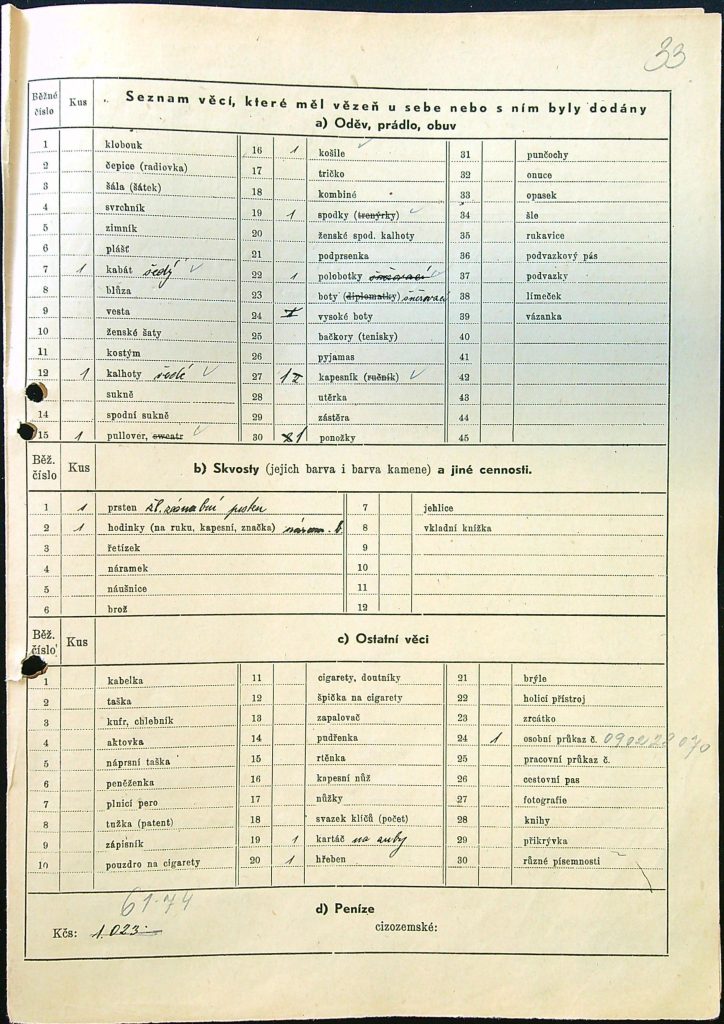 33
Běžné číslo Kus Seznam věcí, které měl vězeň u sebe nebo s ním byly dodány
a) Oděv, prádlo, obuv
1 klobouk 16 1 košile 31 punčochy
2 čepice (radiovka) 17 tričko 32 onuce
3 šála (šátek) 18 kombiné 33 opasek
4 svrchník 19 1 spodky (trenýrky) 34 šle
5 zimník 20 ženské spod. kalhoty 35 rukavice
6 plášť 21 podprsenka 36 podvazkový pás
7 1 kabát šedý 22 1 polobotky šněrovací 37 podvazky
8 blůza 23 boty (diplomatky) šněrovací 38 límeček
9 vesta 24 vysoké boty 39 vázanka
10 ženské šaty 25 bačkory (tenisky) 40
11 kostým 26 pyjamas 41
12 1 kalhoty šedé 27 1 kapesník (ručník) 42
sukně 28 utěrka 43
14 spodní sukně 29 zástěra 44
15 1 pullover, sweatr 30 1 ponožky 45
Běž. číslo Kus b) Skvosty (jejich barva i barva kamene) a jiné cennosti.
1 1 prsten zl. zásnubní 7 jehlice
2 1 hodinky (na ruku, kapesní, značka) 8 vkladní knížka
3 řetízek 9
4 náramek 10
5 náušnice 11
6 brož 12
Běž. číslo Kus c) Ostatní věci
1 kabelka 11 cigarety, doutníky 21 brýle
2 taška 12 špička na cigarety 22 holicí přístroj
3 kufr, chlebník 13 zapalovač 23 zrcátko
4 aktovka 14 pudřenka 24 1 osobní průkaz č.
5 náprsní taška 15 rtěnka 25 pracovní průkaz č.
6 peněženka 16 kapesní nůž 26 cestovní pas
7 plnicí pero 17 nůžky 27 fotografie
8 tužka (patent) 18 svazek klíčů (počet) 28 knihy
9 zápisník 19 1 kartáč na zuby 29 přikrývka
10 pouzdro na cigarety 20 1 hřeben 30 různé písemnosti
61·74
d) Peníze
Kčs: 1.023.- cizozemské: